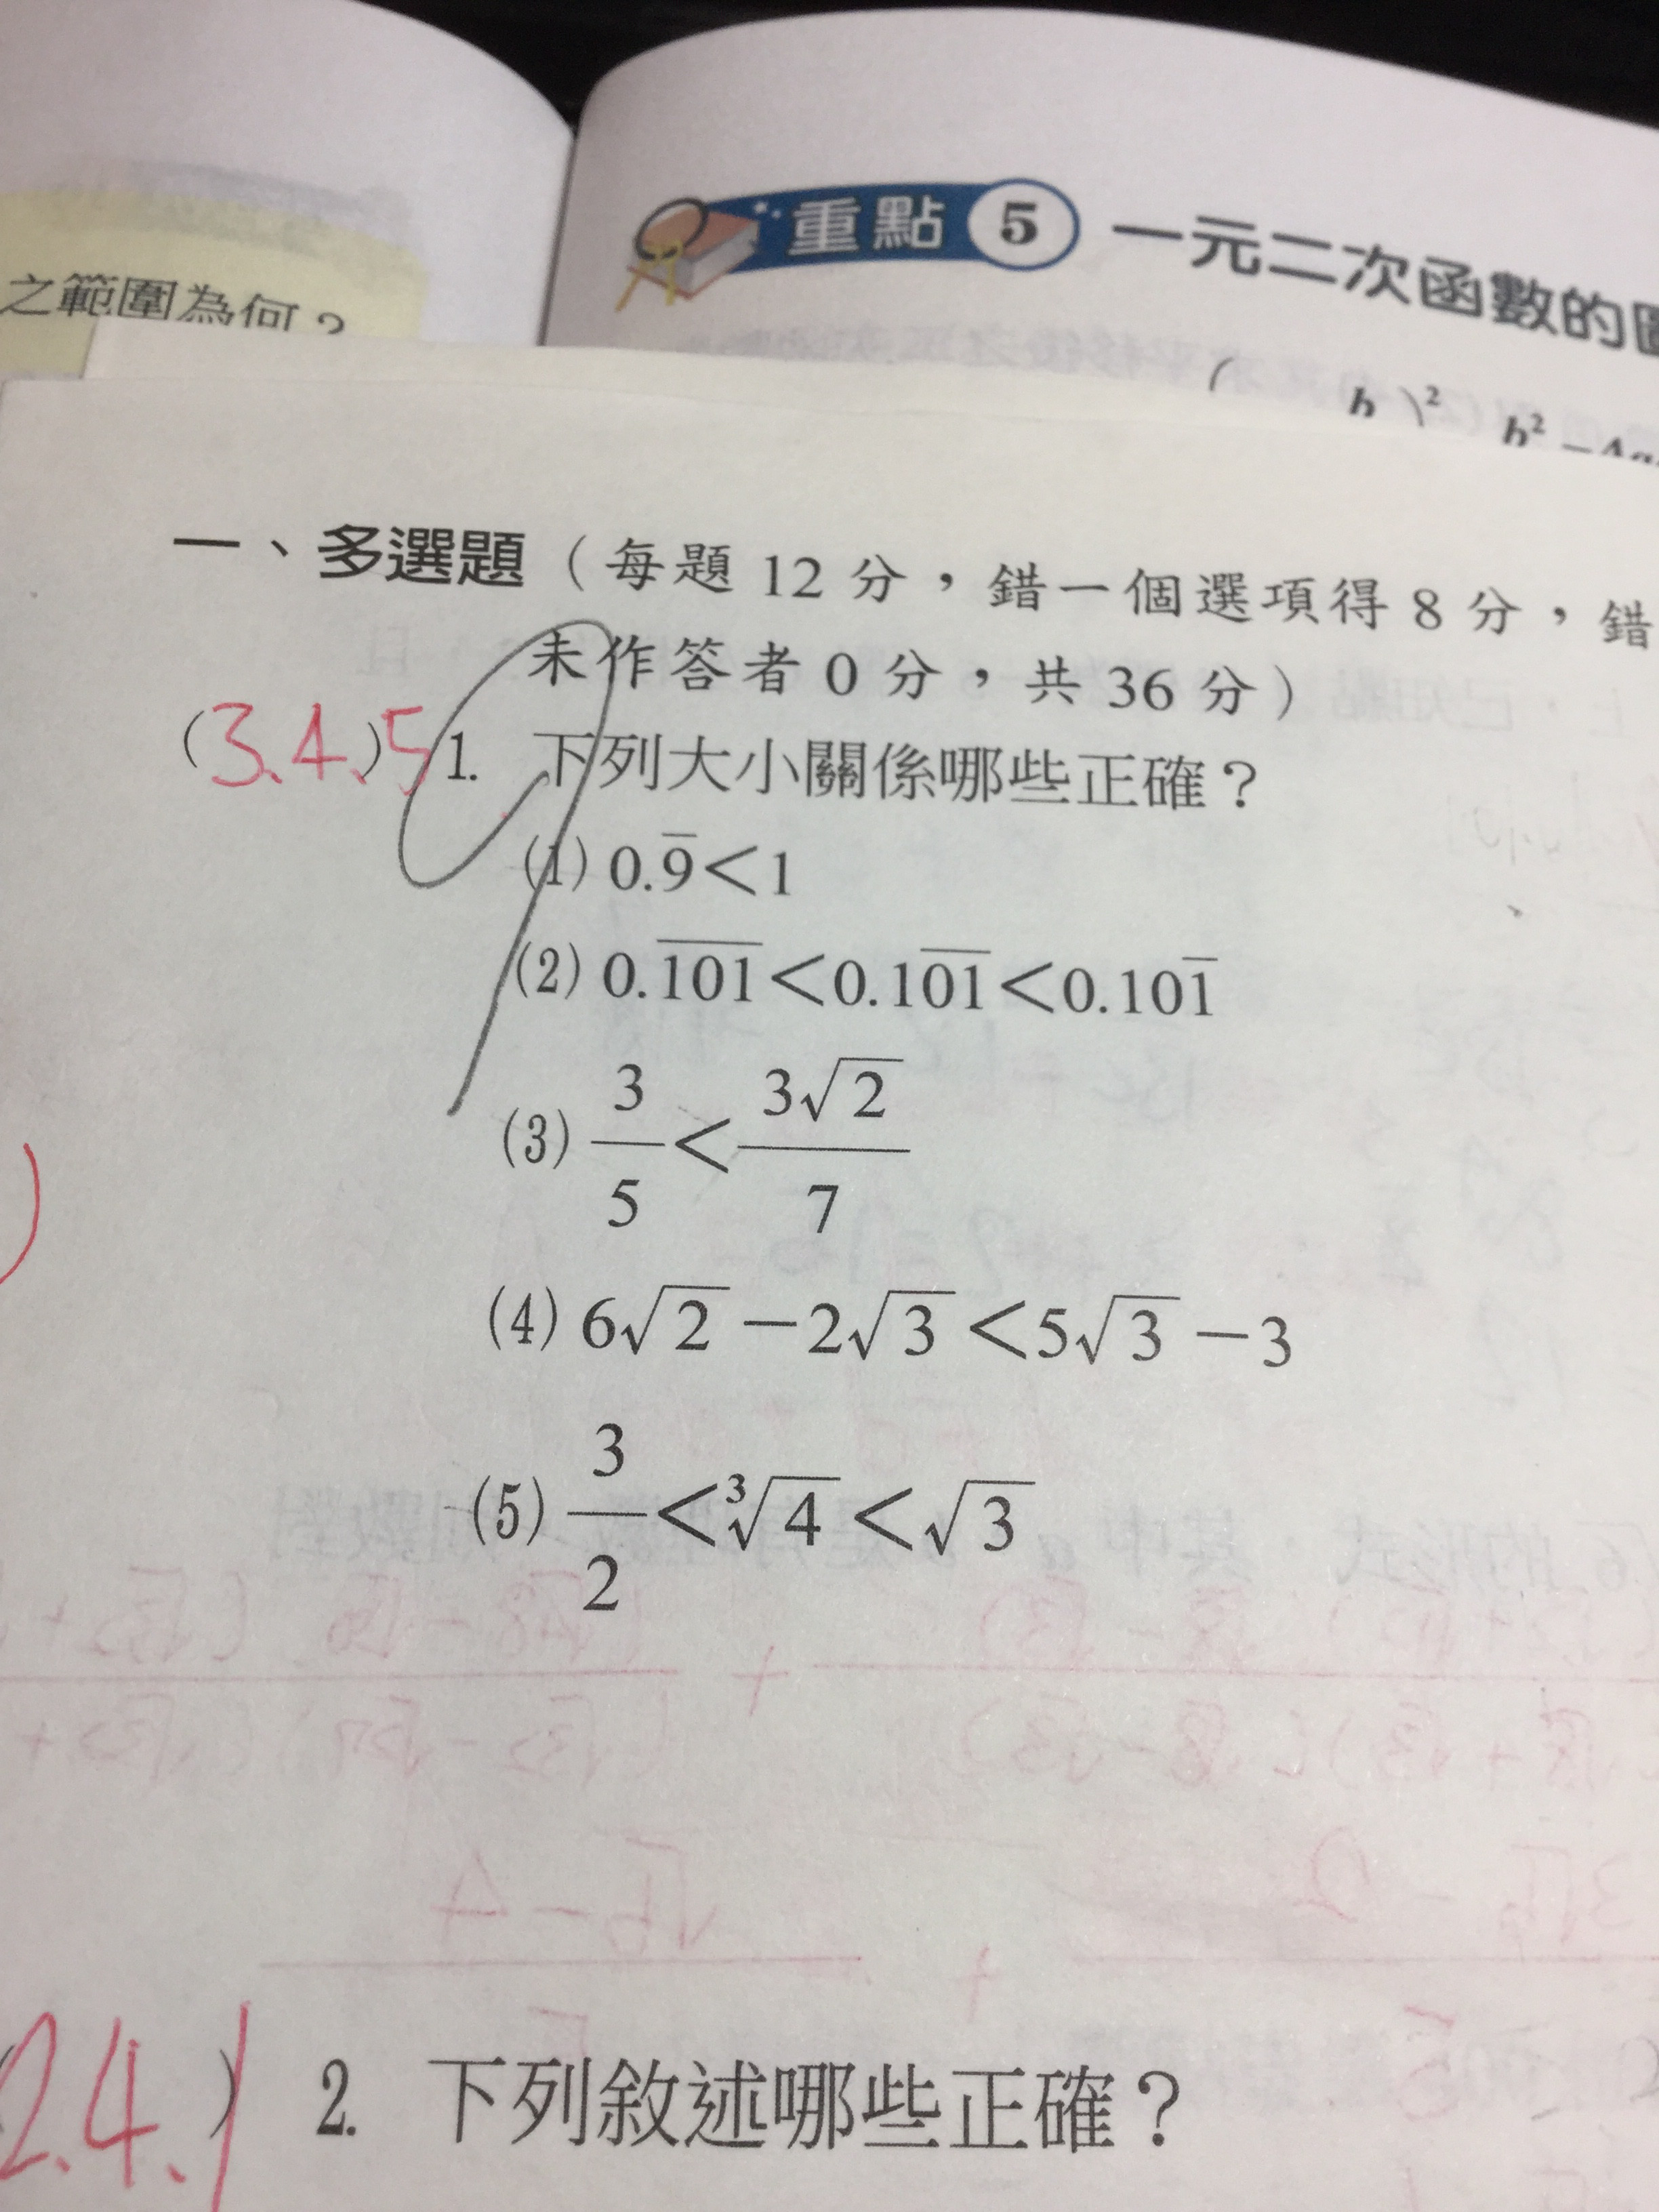 之範圍為何？
重點 5 一元二次函數的
b )² b² −4a
一、多選題（每題 12 分，錯一個選項得 8 分，錯
未作答者 0 分，共 36 分）
(3.4.)5 1. 下列大小關係哪些正確？
(1) 0.9̅＜1
(2) 0.1̅0̅1̅＜0.10̅1̅＜0.101̅
(3) 3/5＜3√2/7
(4) 6√2 −2√3＜5√3 −3
(5) 3/2＜∛4＜√3
2.4.) 1 2. 下列敘述哪些正確？